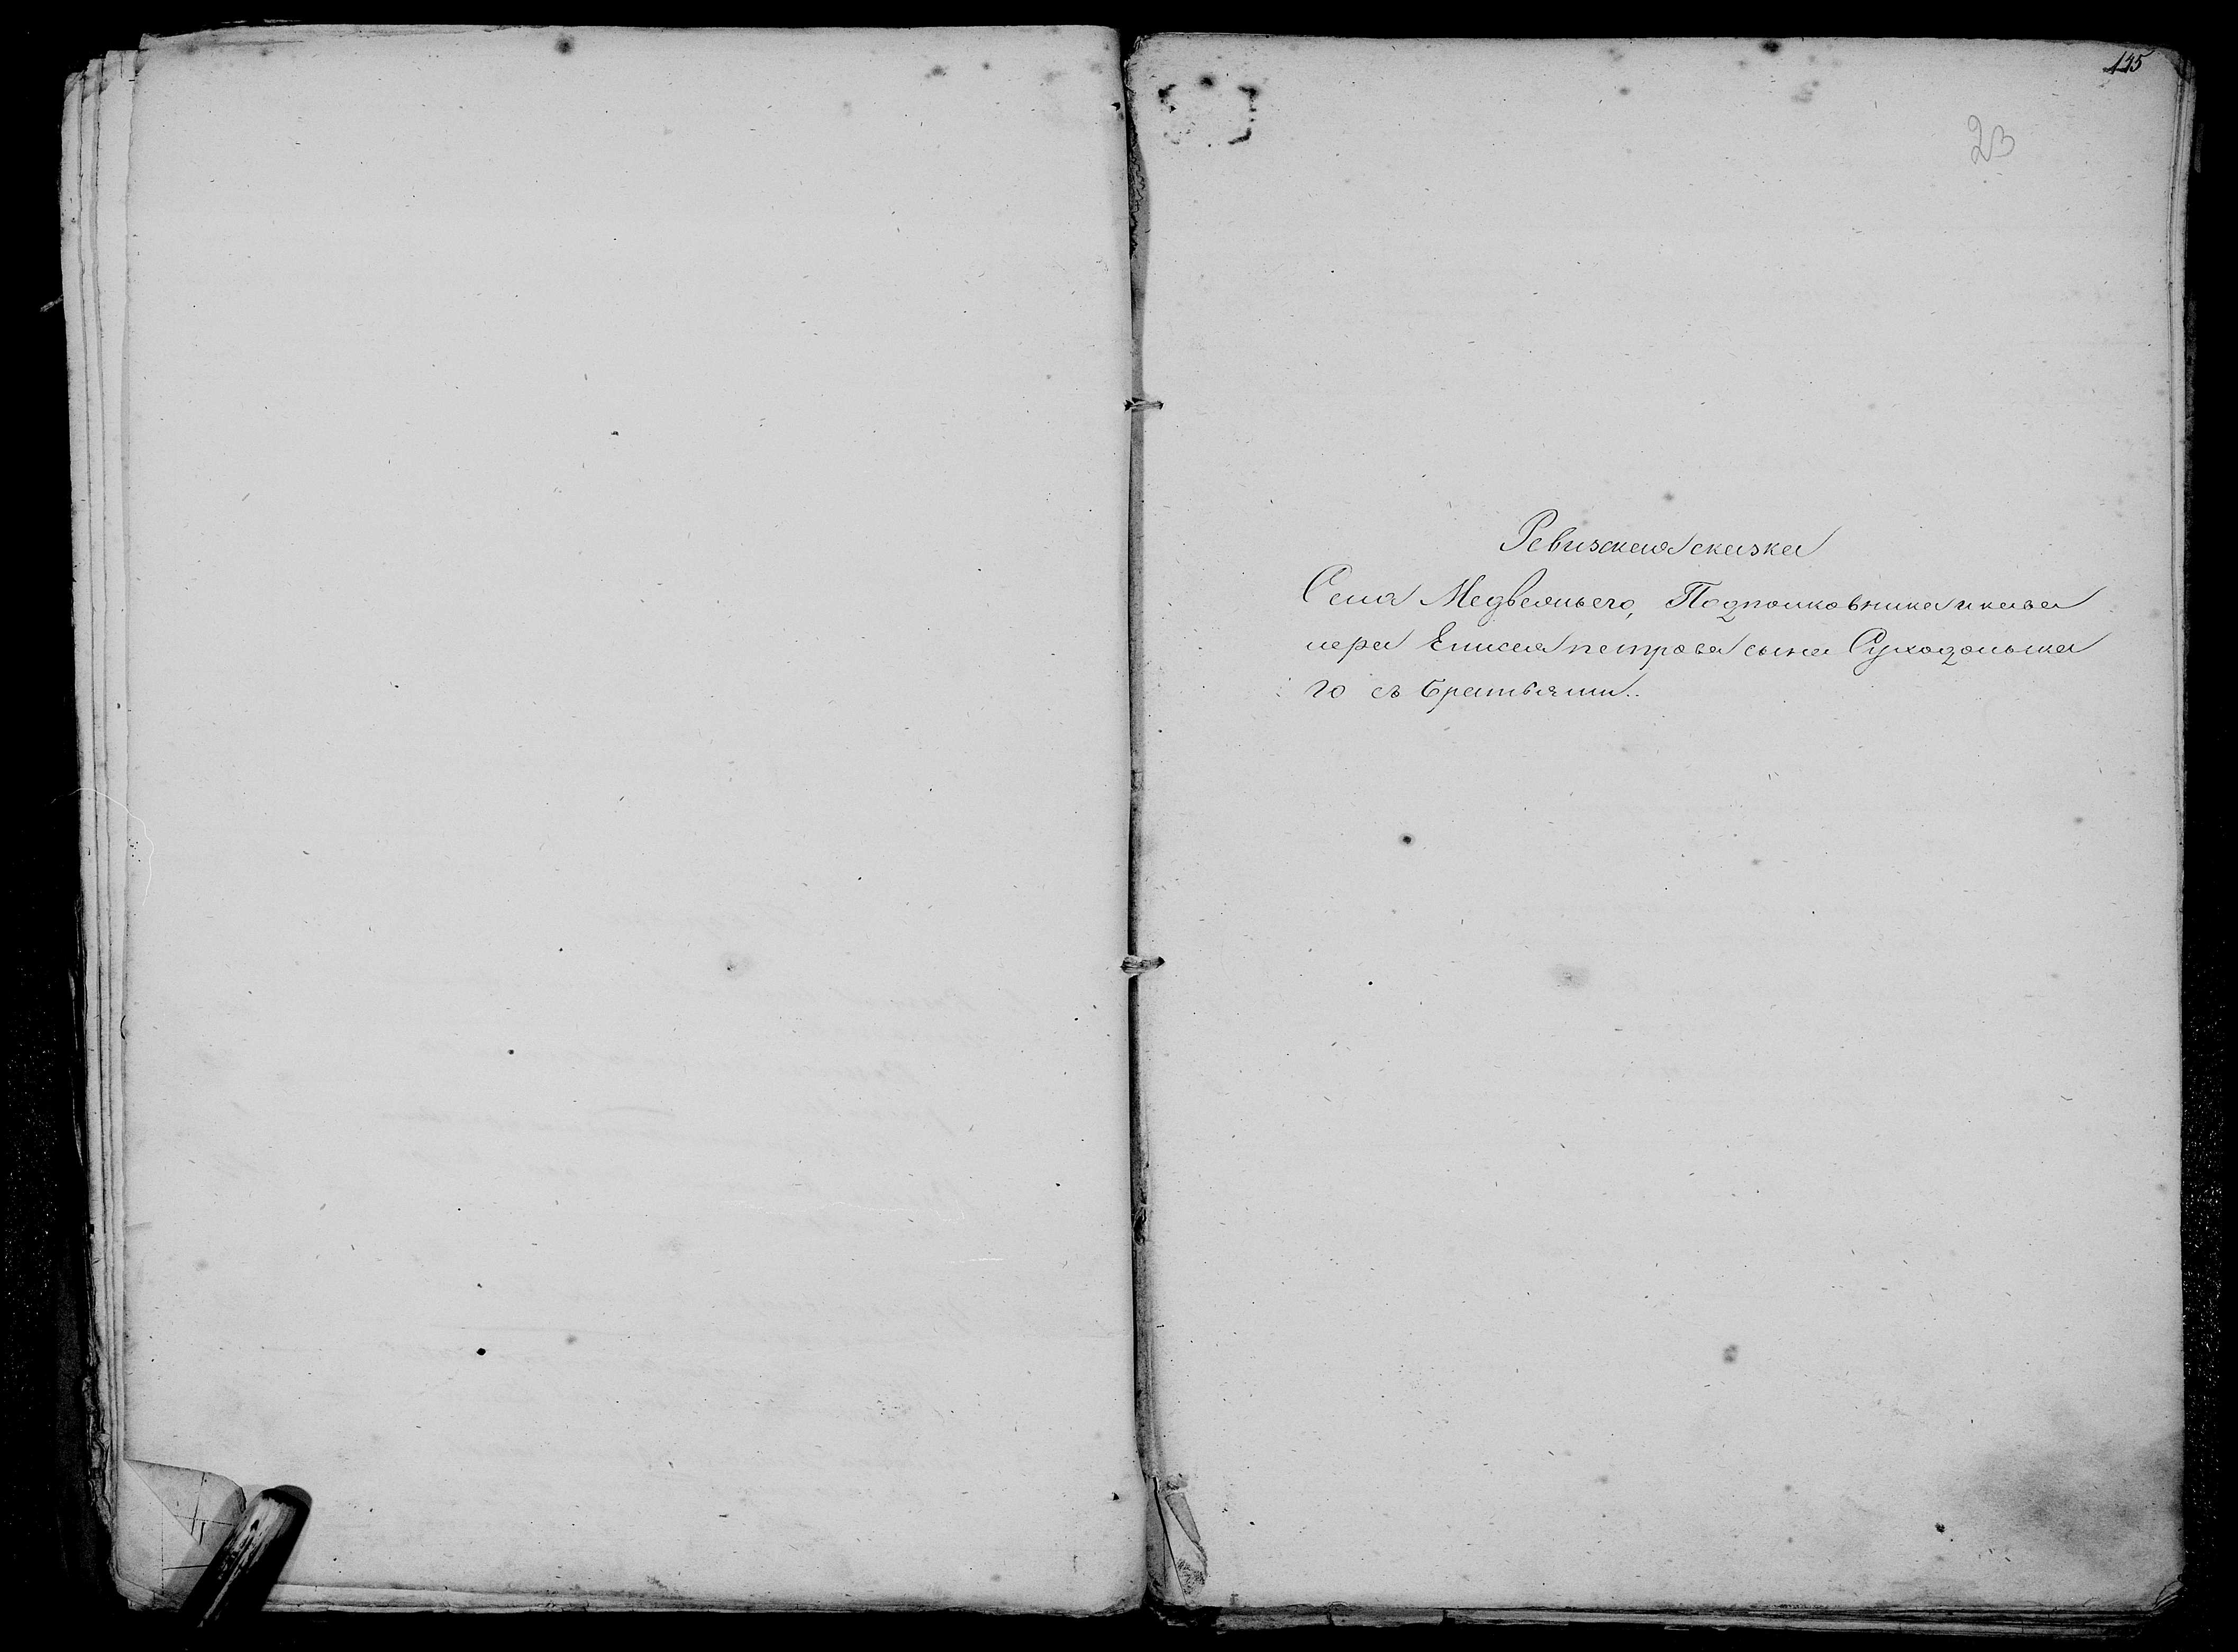 145
23
Ревизская сказка
Села Медвежьего, Подполковника и кава
лера Елисея петрова сына Суходольска
го съ братьями..